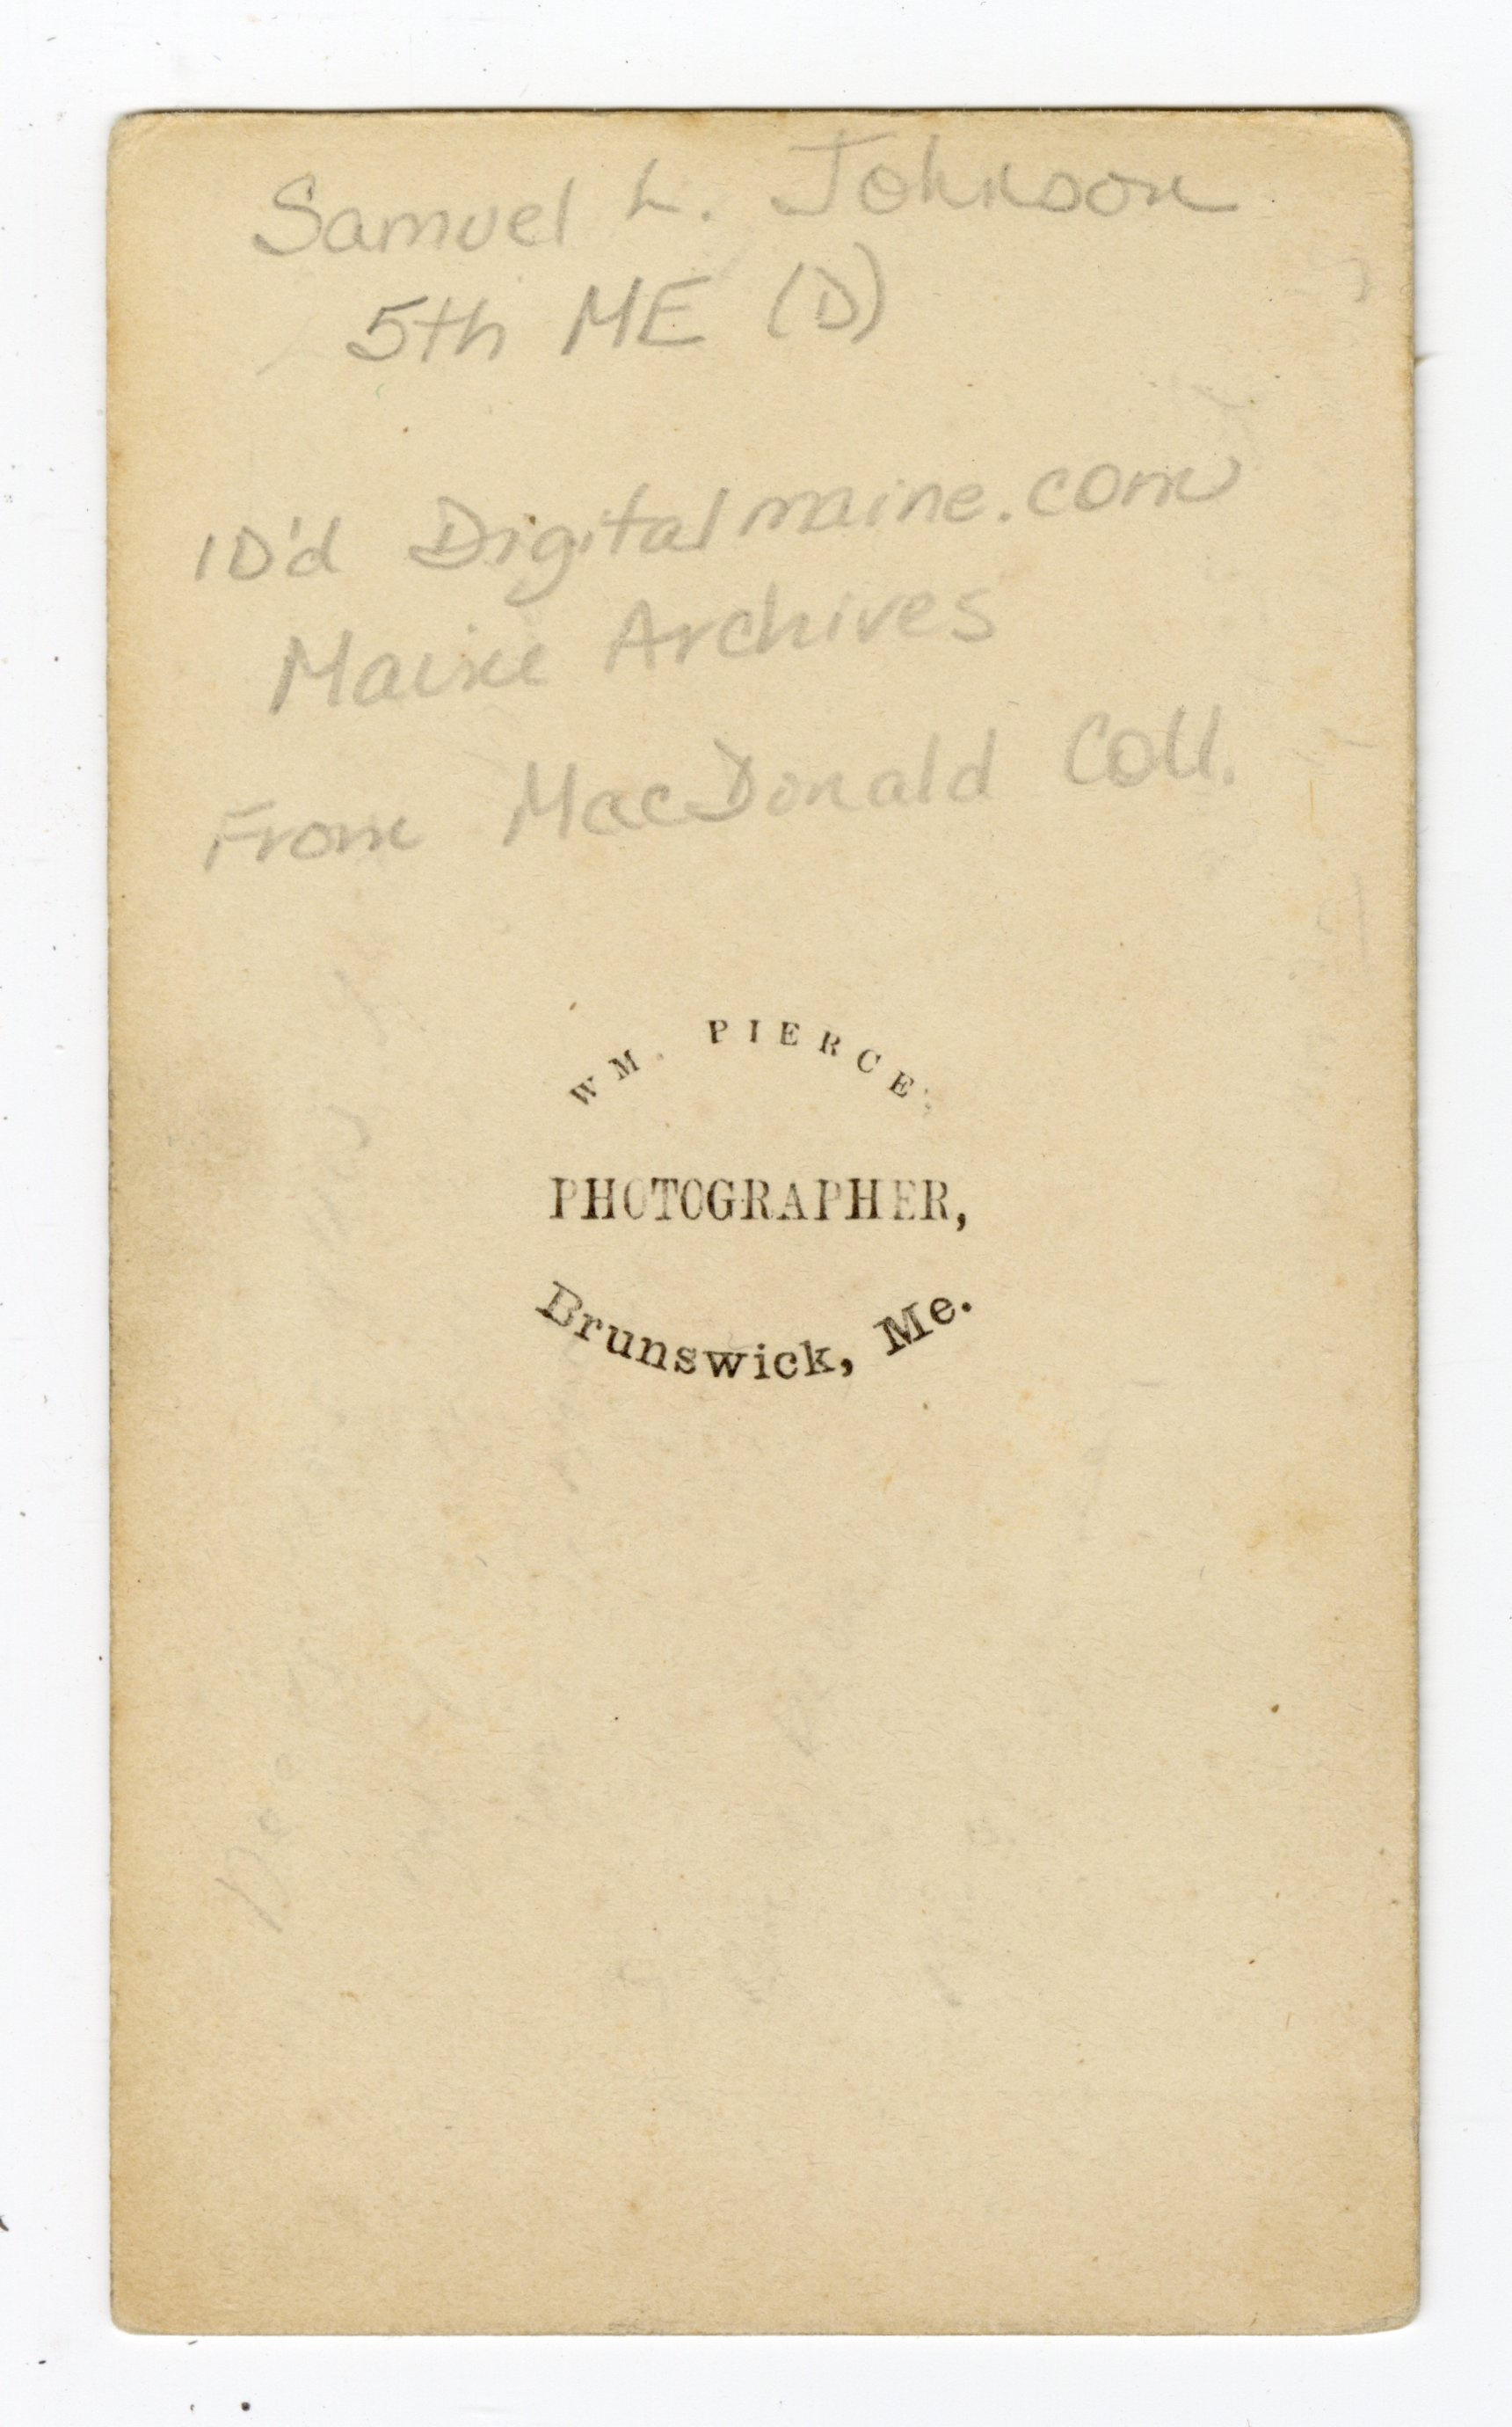 Samuel L. Johnson
5th ME (D)
ID'd Digitalmaine.com
Maine Archives
From MacDonald Coll.
WM. PIERCE,
PHOTOGRAPHER,
Brunswick, Me.